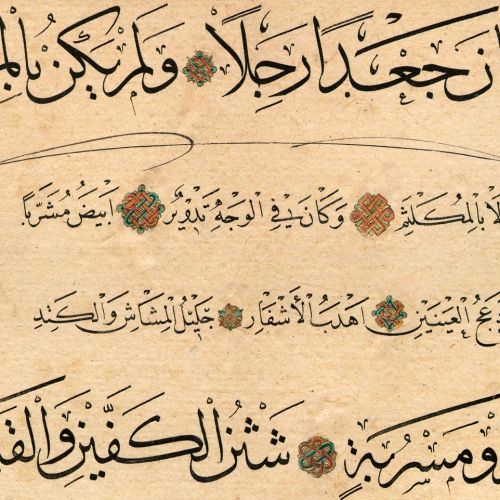 جَعْدًا رَجِلًا وَلَمْ يَكُنْ
بِالْمُكَلْثَمِ وَكَانَ فِي الْوَجْهِ تَدْوِيرٌ اَبْيَضُ مُشْرَبًا
الْعَيْنَيْنِ اَهْدَبُ الْأَشْفَارِ جَلِيْلُ الْمُشَاشِ وَالْكَتَدِ
مَسْرُبَةٍ شَثْنُ الْكَفَّيْنِ